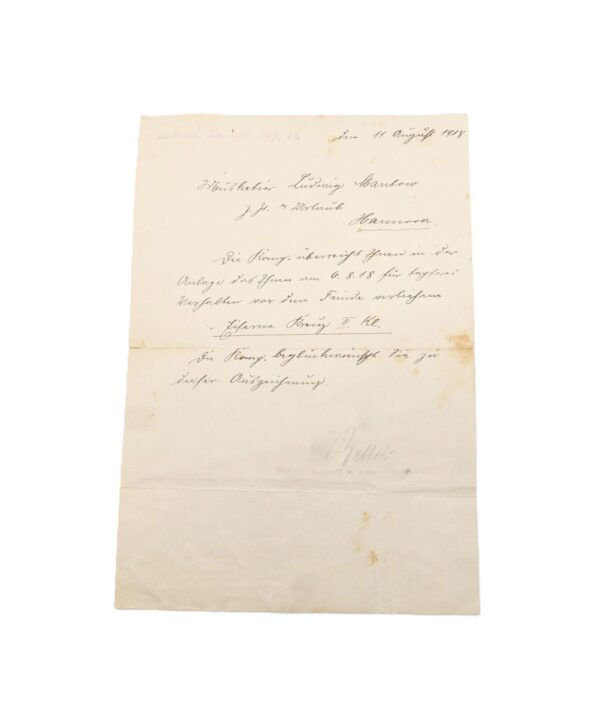 den 11. August 1918
Musketier Ludwig Mantow
z. Zt. Urlaub
Hannover.
Die Komp. überreicht Ihnen in der
Anlage das Ihnen am 6.8.18 für tapferes
Verhalten vor dem Feinde verliehene
Eiserne Kreuz II. Kl.
Die Komp. beglückwünscht Sie zu
dieser Auszeichnung.